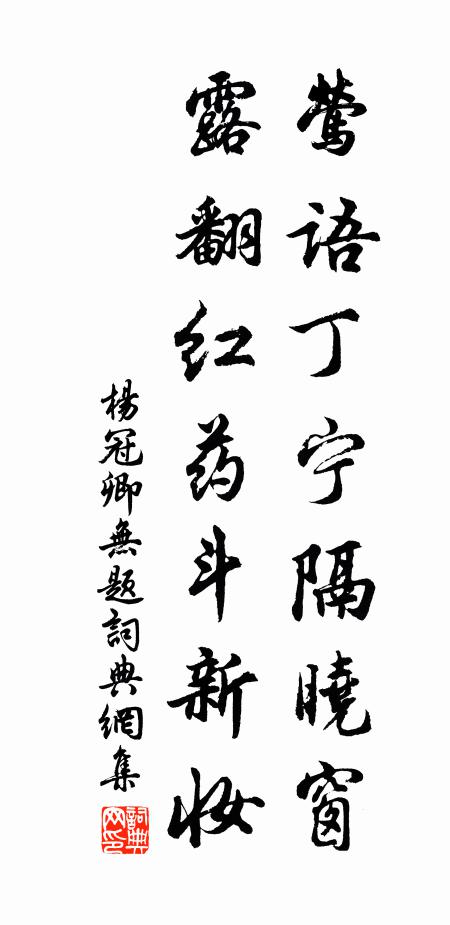 莺语丁宁隔曉窗
露翻红药斗新妝
楊冠卿無题詞典網集
詞典網印